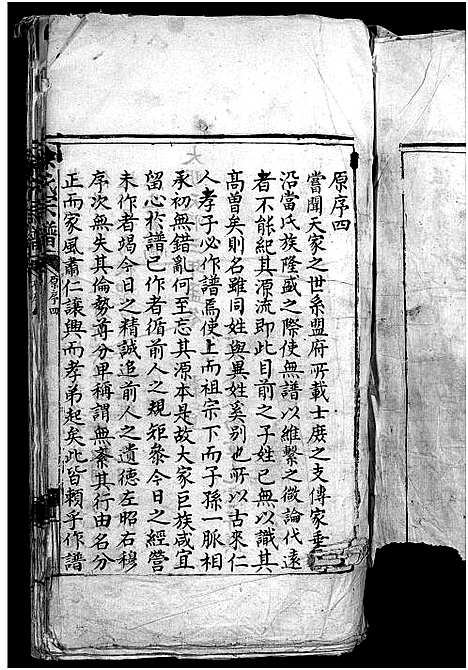 原序四
嘗聞天家之世系盟府所載士庶之支傳家乗
沿當氏族隆盛之際使無譜以維繫之微論代遠
者不能紀其源流即此目前之子姓已無以識其
高曽矣則名雖同姓與異姓奚别也所以古來仁
人孝子必作譜焉使上而祖宗下而子孫一脈相
承初無錯亂何至忘其源本是故大家巨族咸宜
留心於譜已作者循前人之規矩叅今日之經營
未作者竭今日之精誠追前人之遺德左昭右穆
序次無失其倫勢尊分卑稱謂無紊其行由名分
正而家風肅仁讓興而孝弟起矣此皆頼乎作譜
氏宗譜
原序四